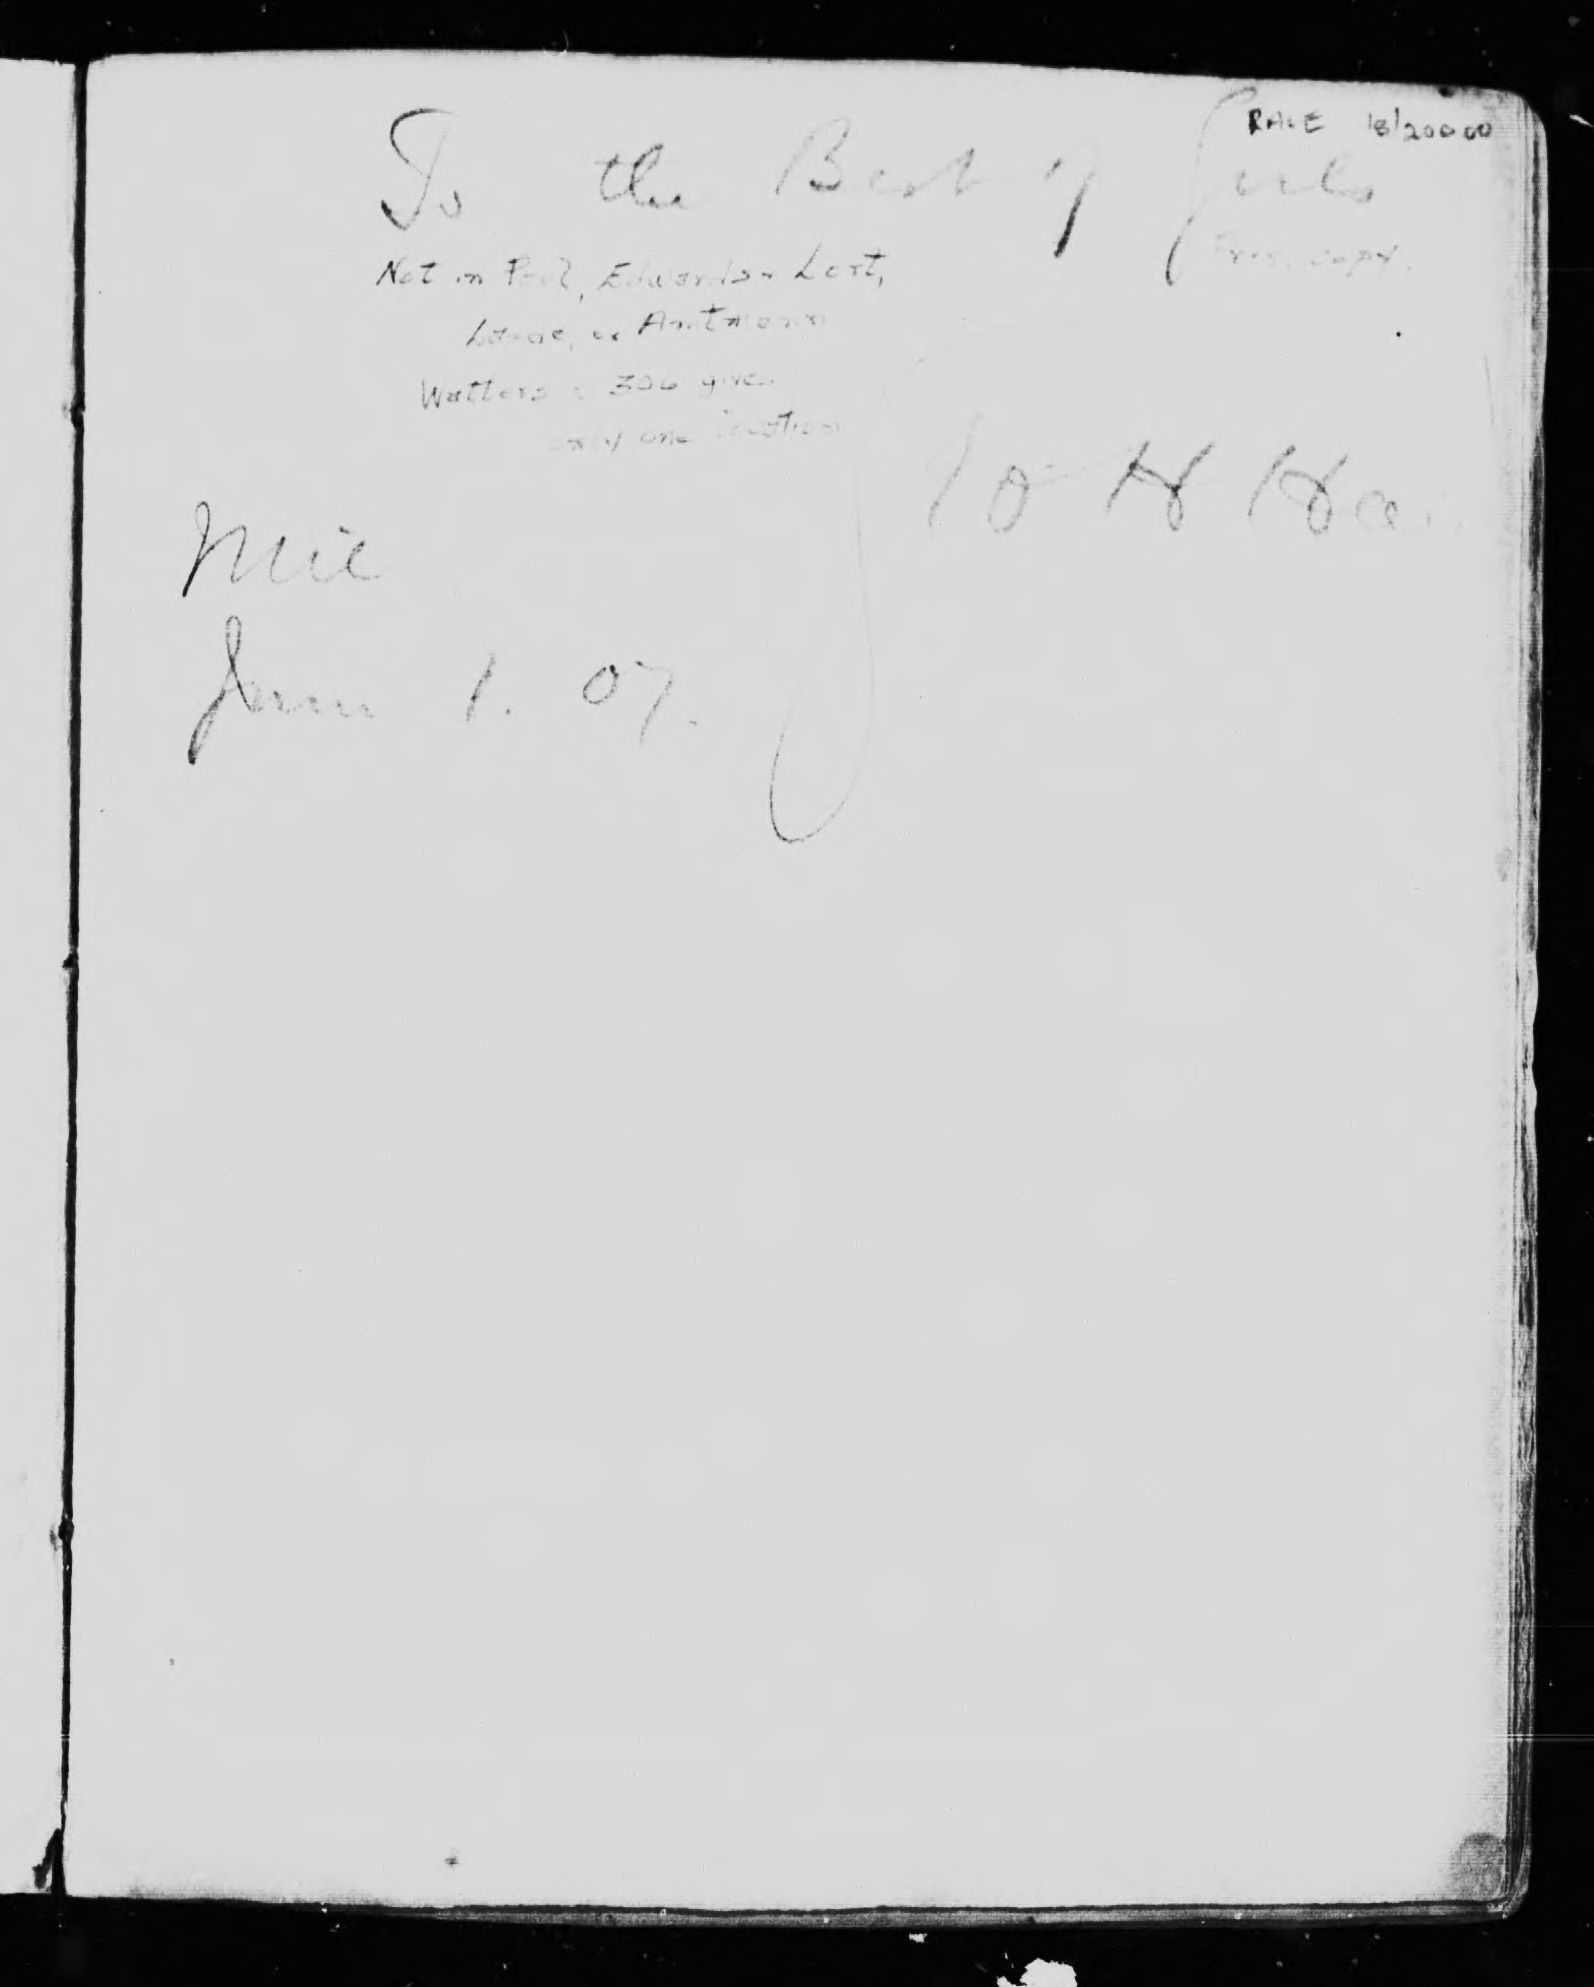 RARE 18/200 00
To the Best of Girls
Pres. copy.
Not in Peel, Edwards & Lort,
Lande, or Amtmann
Watters p 306 gives
only one location
W H Ha
Mil
Jan 1. 07.